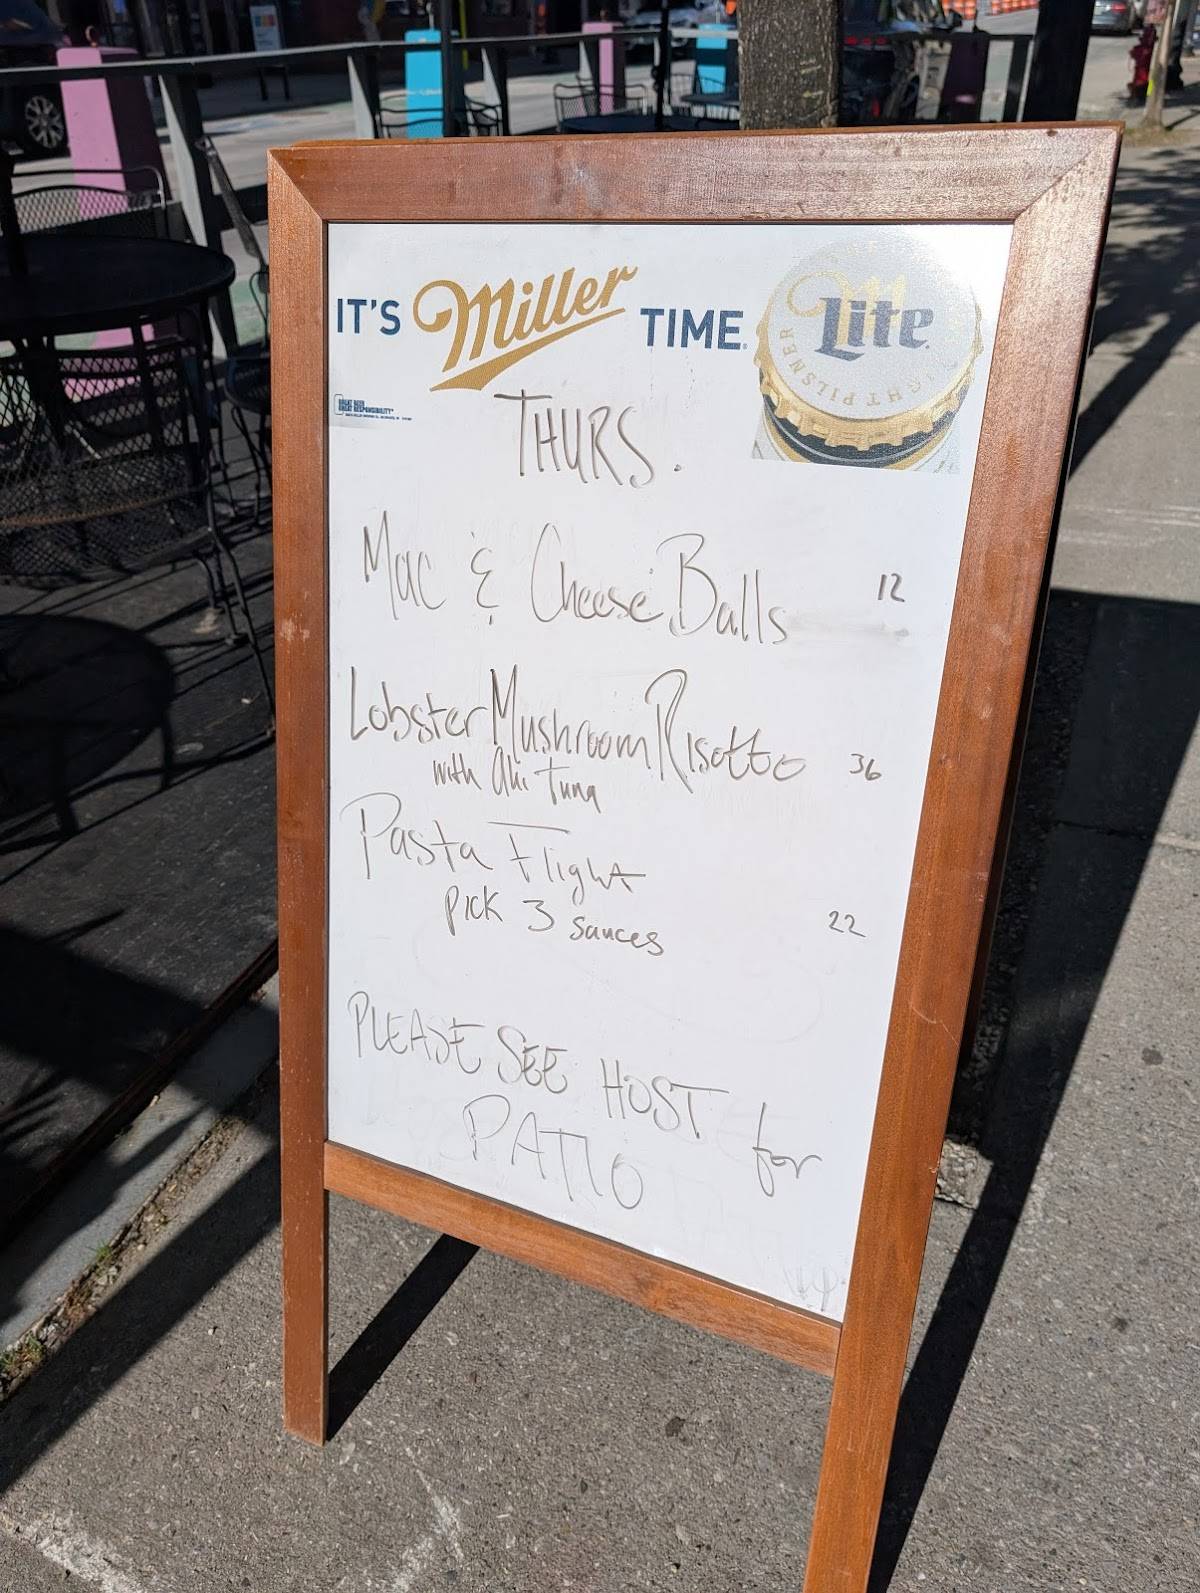 IT'S Miller TIME.
Lite
LIGHT PILSNER
GREAT BEER
GREAT RESPONSIBILITY
THURS.
Mac & Cheese Balls 12
Lobster Mushroom Risotto 36
with Ahi Tuna
Pasta Flight
Pick 3 sauces 22
PLEASE SEE HOST for
PATIO